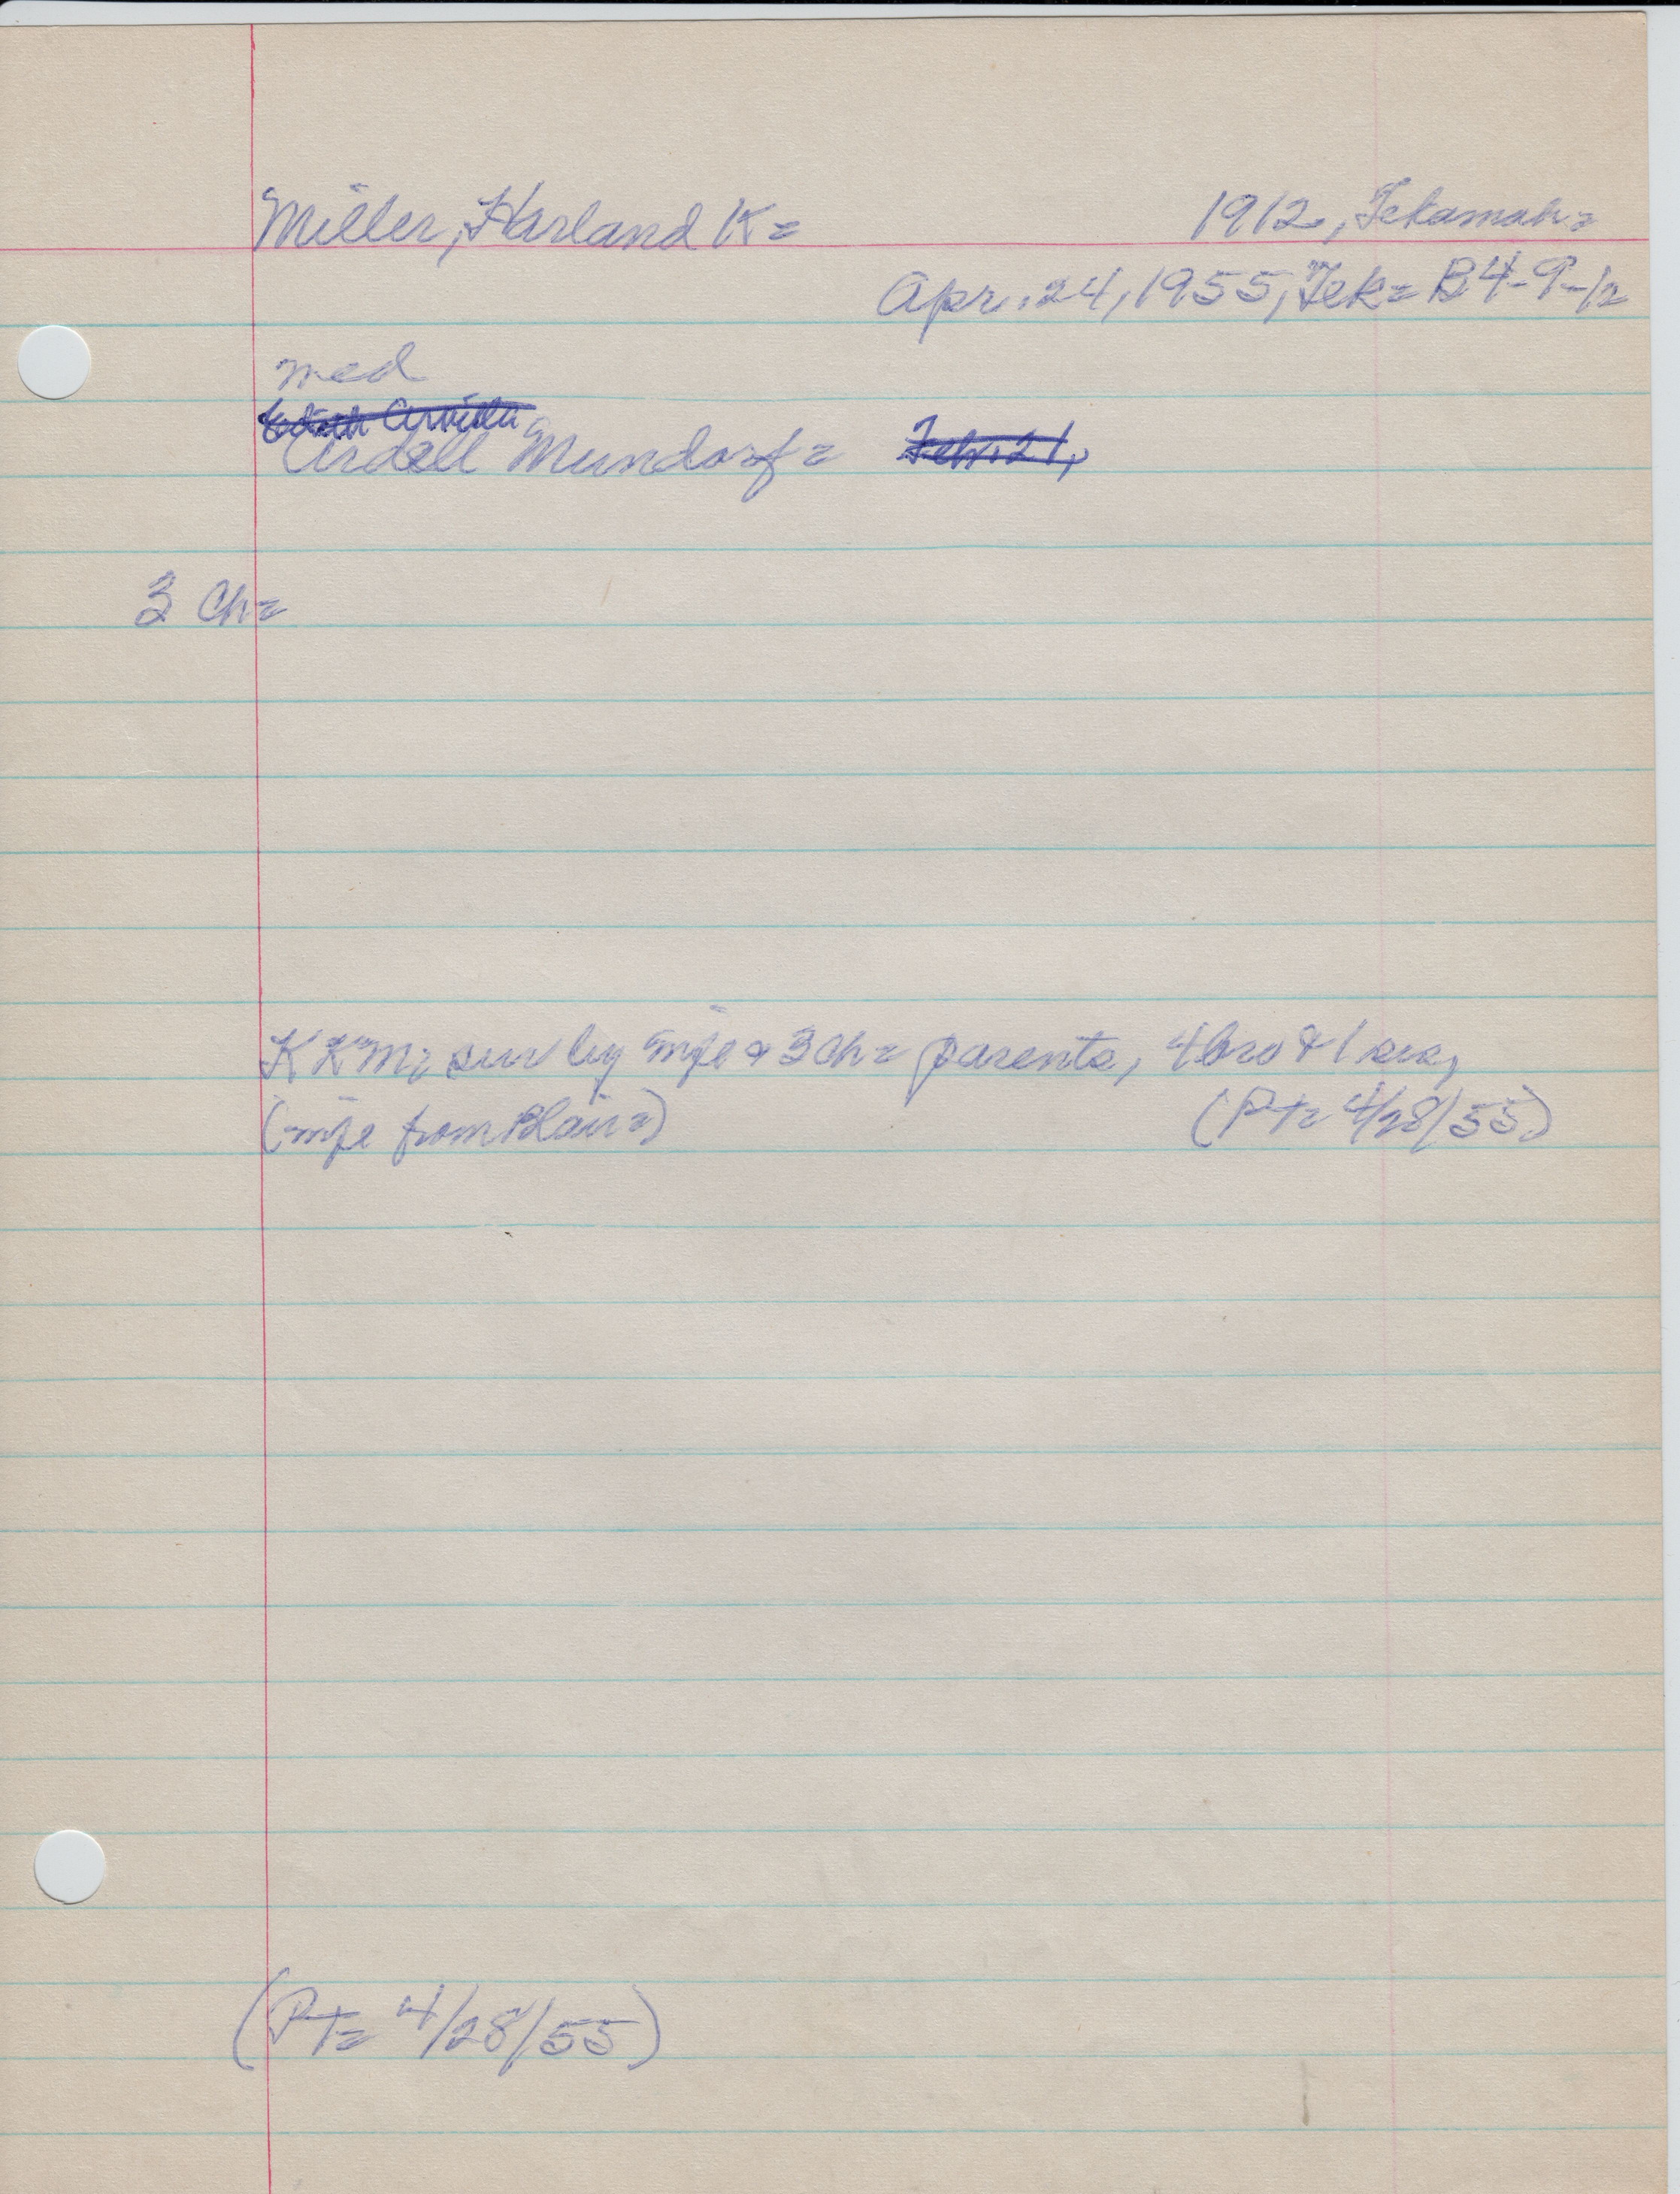 Miller, Harland K= 1912, Tekamah=
Apr. 24, 1955, Tek= B4-9-1/2
med
Ardell Mundorf= Feb. 21,
3 Ch=
sur by wife & 3 ch= parents, 4 bro & 1 sis,
(wife from Blair=) (PT= 4/28/55)
(PT= 4/28/55)